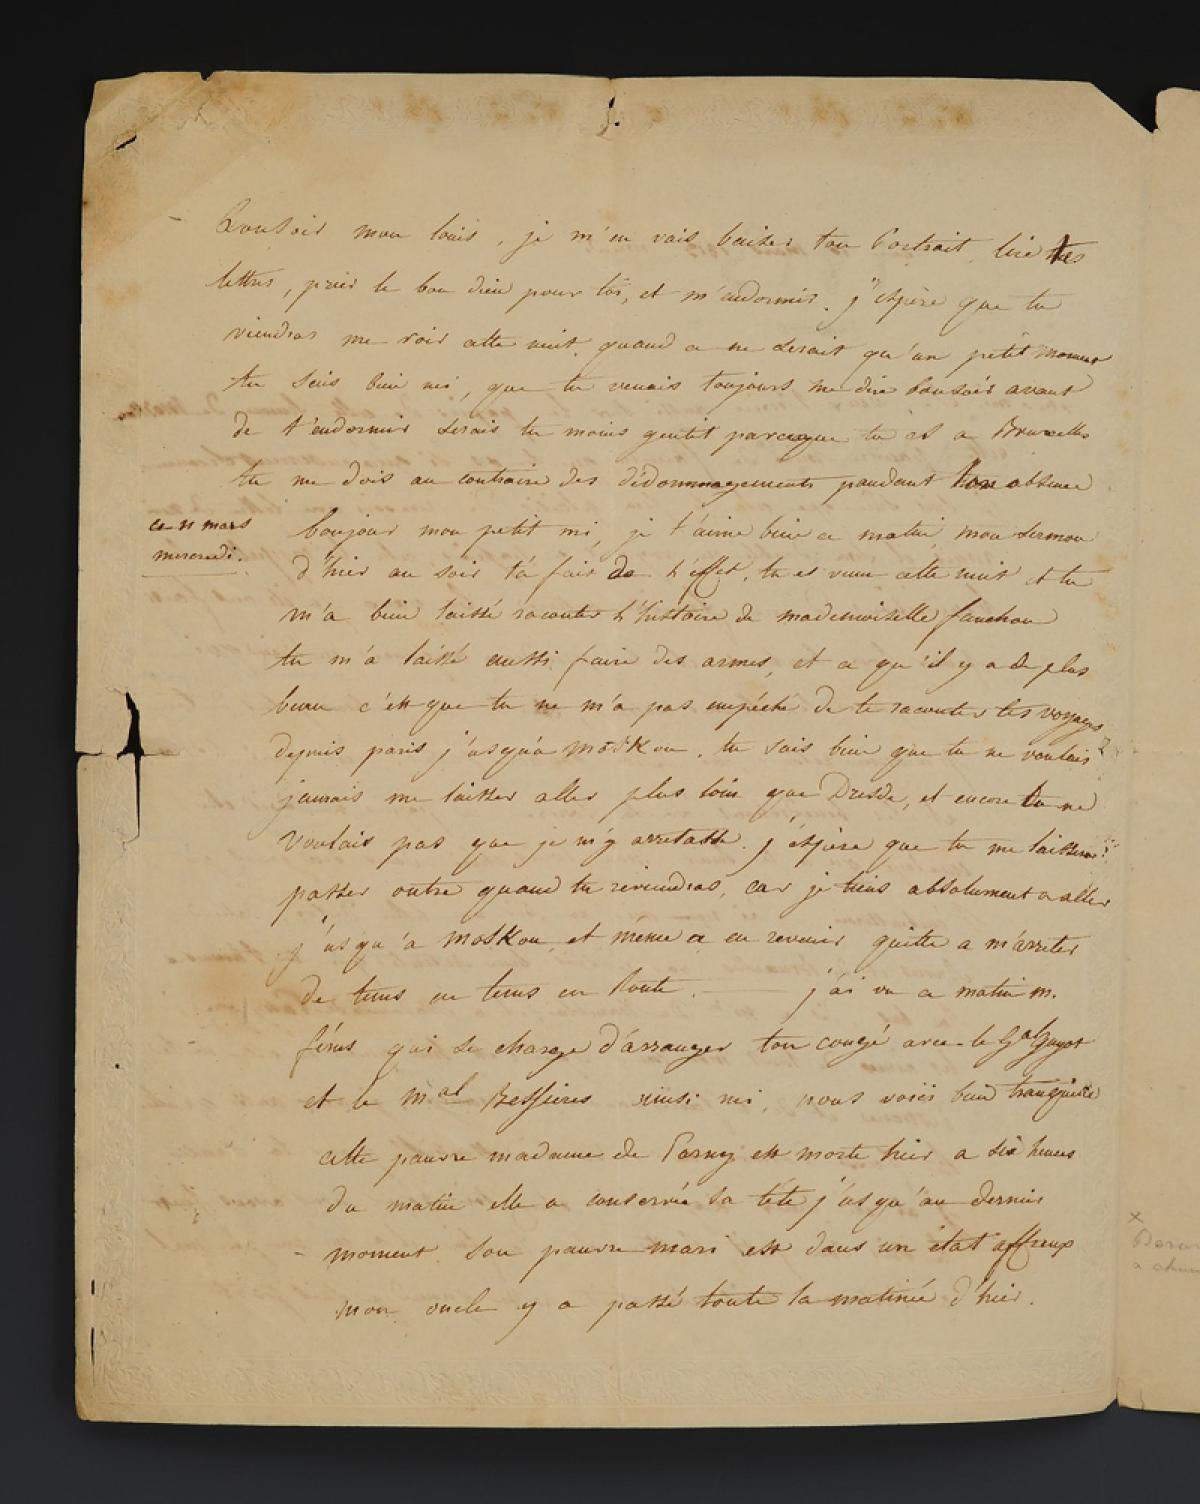 bonsoir mon louis, je m'en vais baiser ton Portrait, lire tes
lettres, prier le bon dieu pour toi, et m'endormir. j'espère que tu
viendras me voir cette nuit, quand ce ne serait qu'un petit moment
tu sais bien mi, que tu venais toujours me dire bonsoir avant
de t'endormir serais tu moins gentil parceque tu es a Bruxelles
tu me dois au contraire des dédommagements pendant ton absence
ce 11 mars
mercredi.
bonjour mon petit mi, je t'aime bien ce matin, mon sermon
d'hier au soir t'a fait de l'effet, tu es venu cette nuit et tu
m'a bien laissé raconter l'histoire de mademoiselle fanchon
tu m'a laissé aussi faire des armes, et ce qu'il y a de plus
beau c'est que tu ne m'a pas empéché de te raconter tes voyages
depuis paris j'usqu'a Moskou. tu sais bien que tu ne voulais
jamais me laisser aller plus loin que Dresde, et encore tu ne
voulais pas que je m'y arretasse. j'éspère que tu me laisseras
passer outre quand tu reviendras, car je tiens absolument a aller
j'usqu'a Moskou, et même a en revenir quitte a m'arreter
de tems en tems en Route. ——— j'ai vu ce matin m.
férus qui se charge d'arranger ton congé avec le Gal Guyot
et le Mal Bessieres ainsi mi, nous voici bien tranquille
cette pauvre madame de Parny est morte hier a six heures
du matin elle a conservée sa tête j'usqu'au dernier
moment son pauvre mari est dans un état affreux
mon oncle y a passé toute la matinée d'hier.